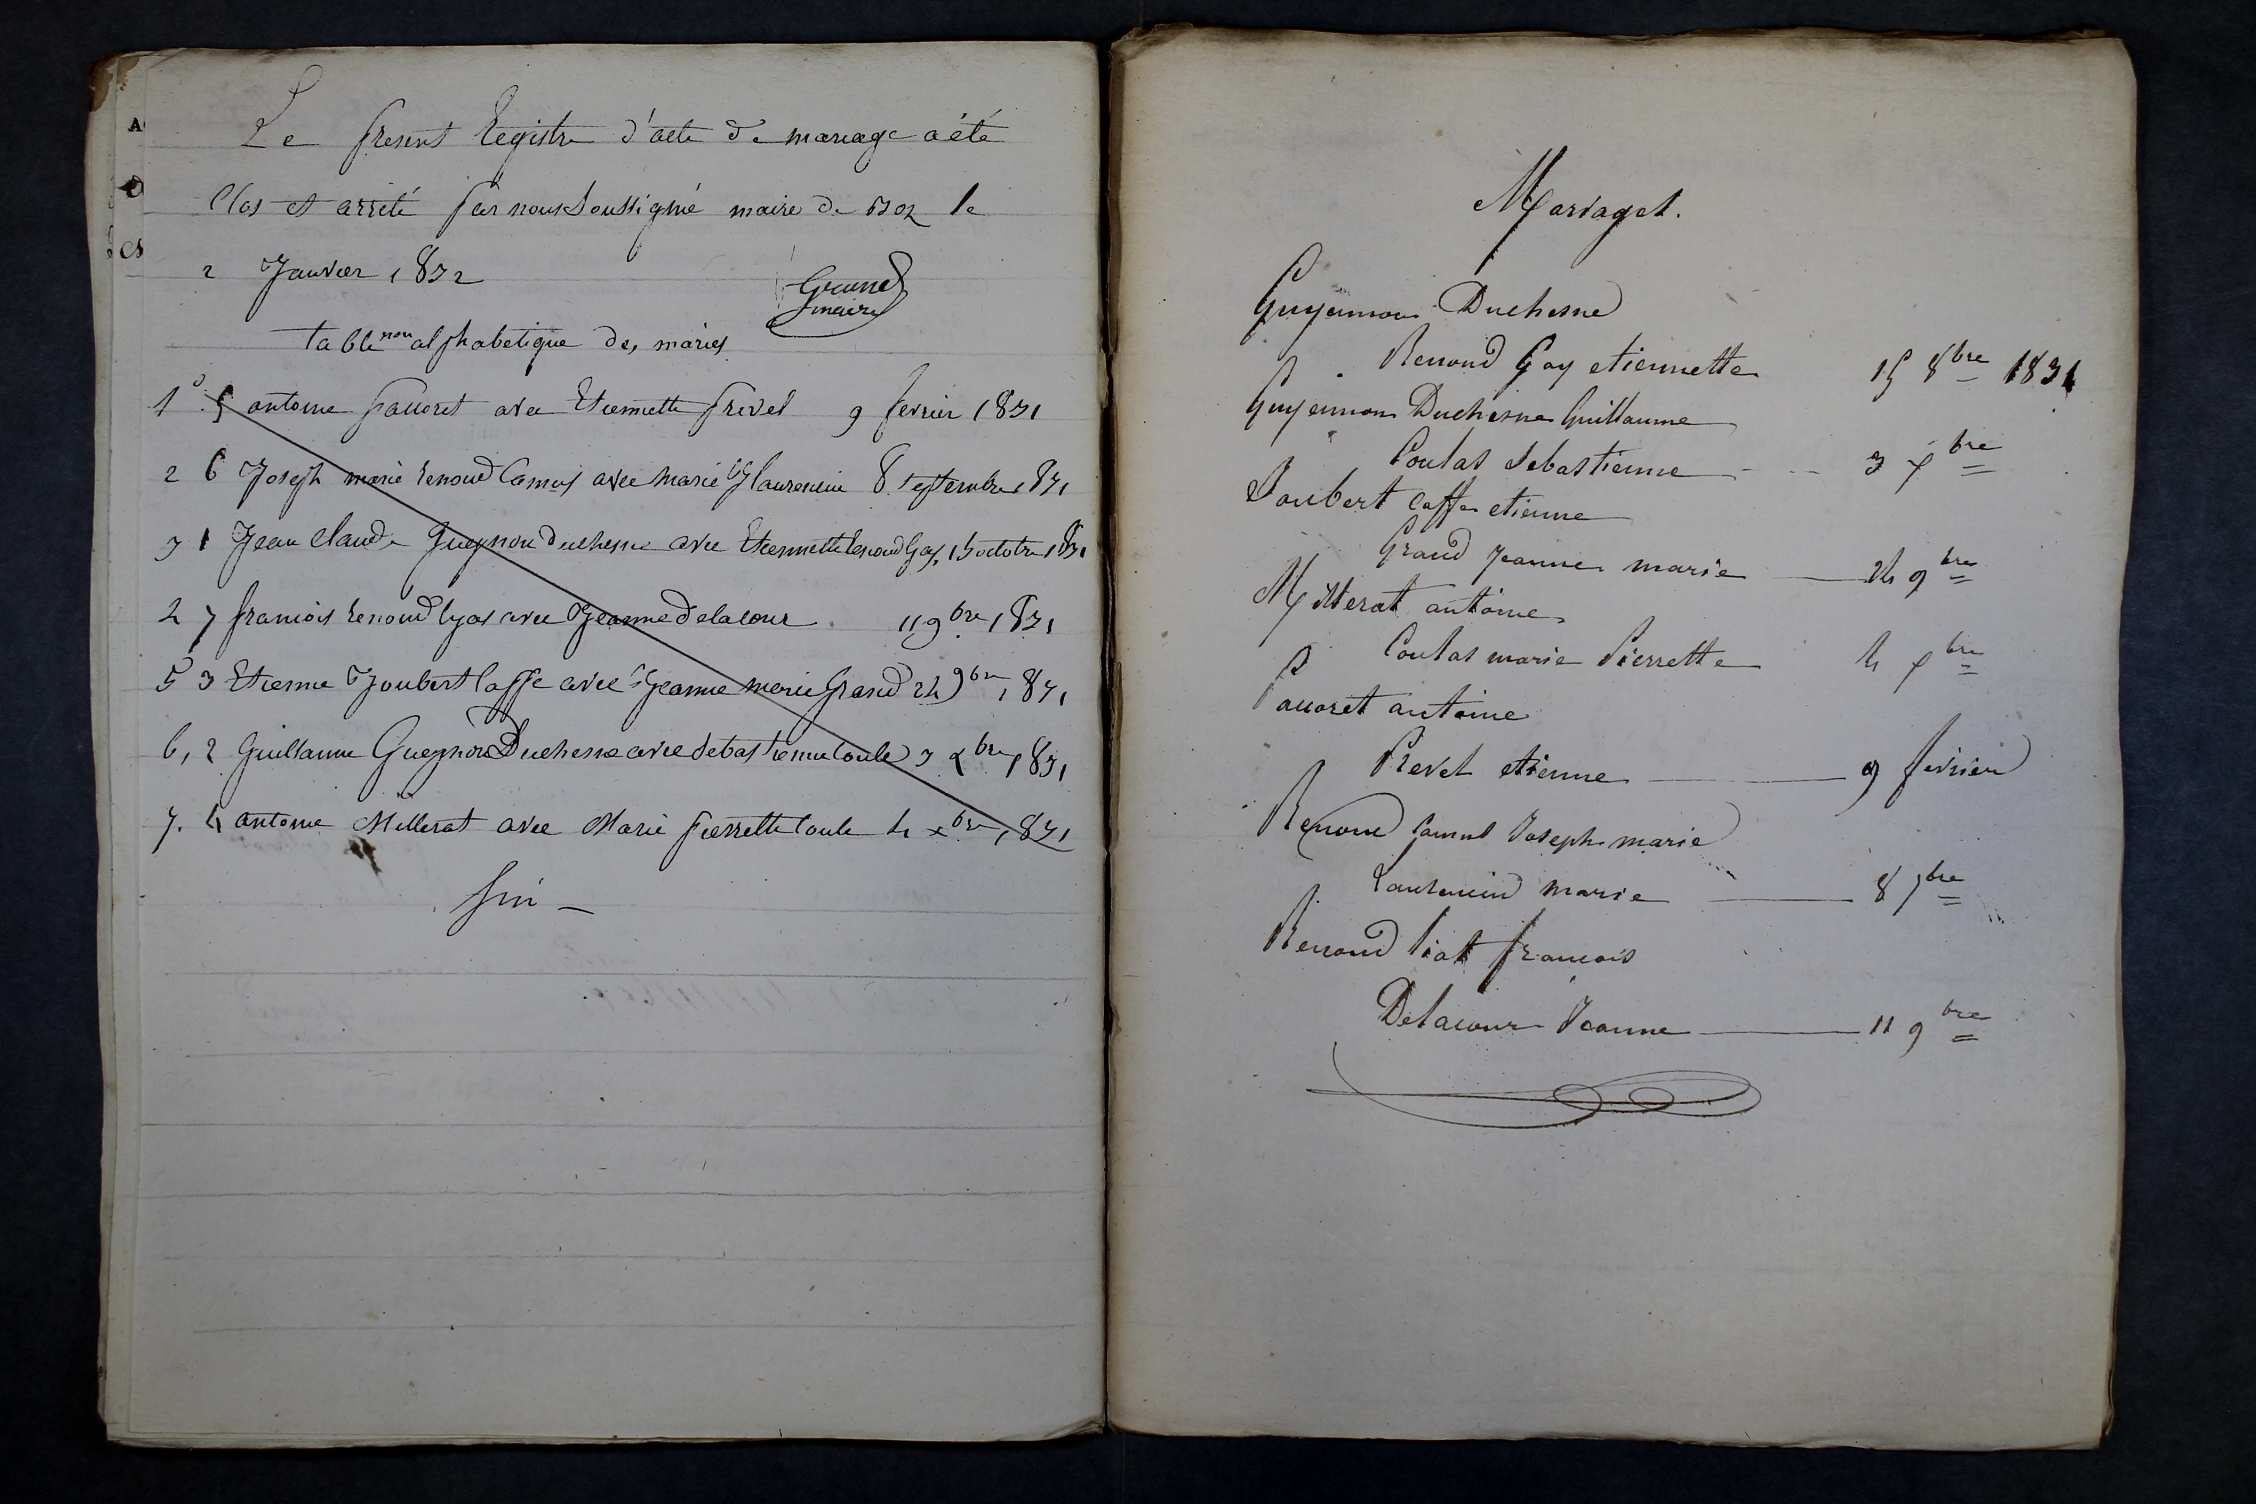 Le present Registre d'acte de mariage a été
Clos et arrêté par nous soussigné maire de Boz le
2 Janvier 1832
Grand
maire
table non alphabetique des mariés
1° 5 antoine pauoret avec Etiennette prevel 9 fevrier 1831
2 6 Joseph marie renoud Camus avec marie laurencin 8 septembre 1831
3 1 Jean Claude Gueynon duchesne avec Etiennette renoud Gay 15 octobre 1831
4 7 francois renoud lyas avec Jeanne Delacour 11 9bre 1831
5 3 Etienne Joubert laffe avec Jeanne marie Grand 24 9bre 1831
6, 2 Guillaume Gueynon Duchesne avec sebastienne Coula 3 xbre 1831
7. 4 antoine Millerat avec Marie pierrette Coula 4 xbre 1831
fin
Mariages.
Guyennon Duchesne
Renoud Gay etiennette 15 8bre 1831
Guyennon Duchesne Guillaume
Coulas Sebastienne 3 xbre
Joubert Caffe etienne
Grand Jeanne marie 24 9bre
Millerat antoine
Coulas marie Pierrette 4 xbre
Pauoret antoine
Prevel etienne 9 fevrier
Renoud Camus Joseph marie
Laurencin marie 8 7bre
Renoud liat francois
Delacour Jeanne 11 9bre